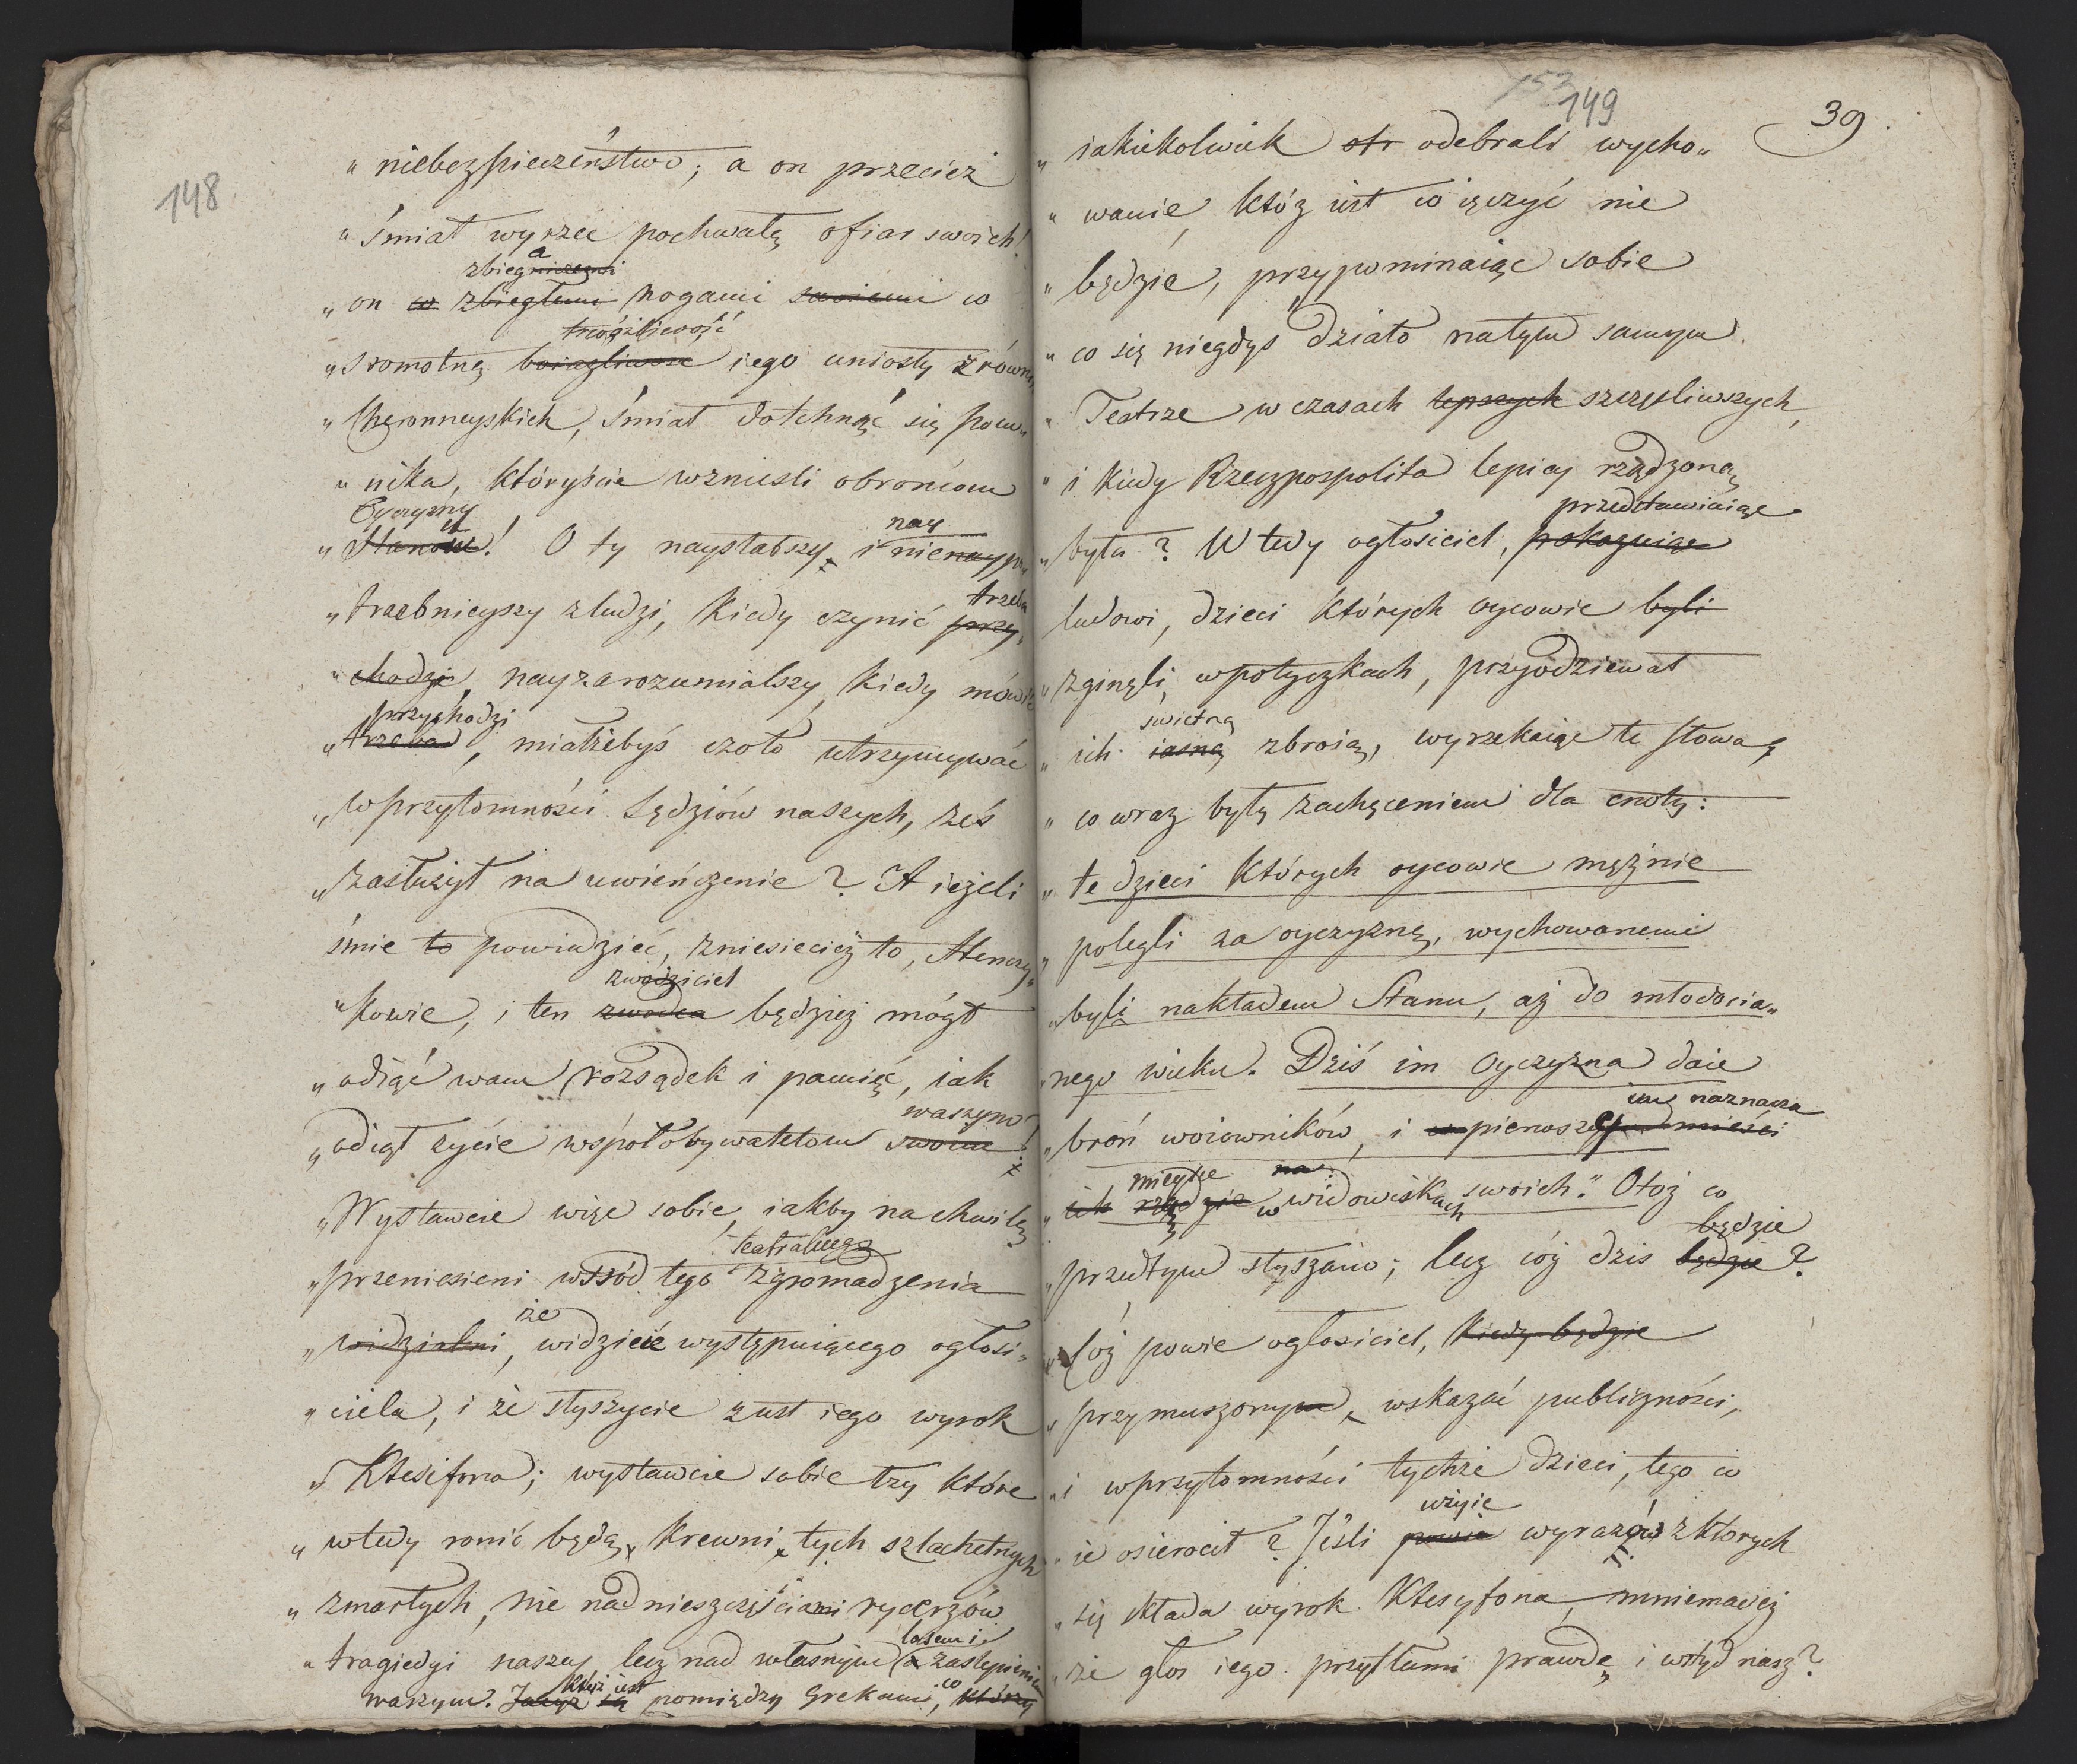 148
„ niebezpieczeństwo; a on przecież
„ śmiał wyrzec pochwałę ofiar swoich!
zbiegniczemi a
„ on co zbiegłemi nogami swoiemi co
trwożliwość
„ sromotną boiazliwose iego uniosły z równi
„ Cheronneyskich, śmiał dotchnąć się pom„
„ nika, któryście wznieśli obrońcom
Oyczyzny
nay
„ Stanów! O ty naysłabszy i nienaypo„
trzeba
„ trzebnieyszy z ludzi, kiedy czynić przy„
„ chodzi, nayzarozumialszy, kiedy mówić
przychodzi
„ trzeba, miałżebyś czoło utrzymywać
„ w przytomności Sędziów naszych, żeś
„ zasłużył na uwieńczenie? A ieżeli
śmie to powiedzieć, zniesiecież to, Atenczy„
zwodziciel
„ kowie, i ten zwodca będzież mógł
„ odiąć wam rozsądek i pamięć, iak
waszym
„ odiął życie współobywatelom swoim!
„ Wystawcie więc sobie, iakby na chwilę
teatralnego
„ przeniesieni wśród tego zgromadzenia
że
„ widzialni, widzicie występuiącego ogłosi„
„ ciela, i że słyszycie z ust iego wyrok
„ Ktesifona; wystawcie sobie łzy które
„ wtedy ronić będą, krewni, tych szlachetnych
„ zmarłych, nie nad nieszczęściami rycerzów
losem i
„ tragiedyi naszey lecz nad własnym a zaślepieniem
któż iest co
waszym. Jacyż są pomiędzy Grekami, którzy
153
149
39
„ iakiekolwiek otr odebrali wycho„
„ wanie, któż iest co ięczyć nie
„ będzie, przypominaiąc sobie
„ co się niegdyś działo na tym samym
„ Teatrze w czasach lepszych szczęśliwszych,
„ i kiedy Rzeczpospolita lepiey rządzoną
przedstawiaiąc
„ była? Wtedy ogłosiciel, pokazuiąc
ludowi, dzieci których oycowie byli
„ zginęli, w potyczkach, przyodziewał
świetną
„ ich iasną zbroią, wyrzekaiąc te słowa,
„ co wraz były zachęceniem dla cnoty:
„ te dzieci których oycowie mężnie
„ polegli za oyczyznę, wychowanemi
„ byli nakładem Stanu, aż do młodocia„
„ nego wieku. Dziś im Oyczyzna daie
im naznacza
„ broń woiowników, i w pierwszey mieści
mieysce na
„ ich rzędzie w widowiskach swoich." Otoż co
będzie
„ przedtym słyszano; lecz cóż dzis będzie?
„ Cóż powie ogłosiciel, kiedy będzie
„ przymuszonym, wskazać publiczności,
„ i w przytomności tychże dzieci, tego co
użyie
„ ie osierocił? Jeśli powie wyrazów z ktorych
„ się składa wyrok Ktesyfona, mniemacież
„ że głos iego przytłumi prawdę i wstyd nasz?